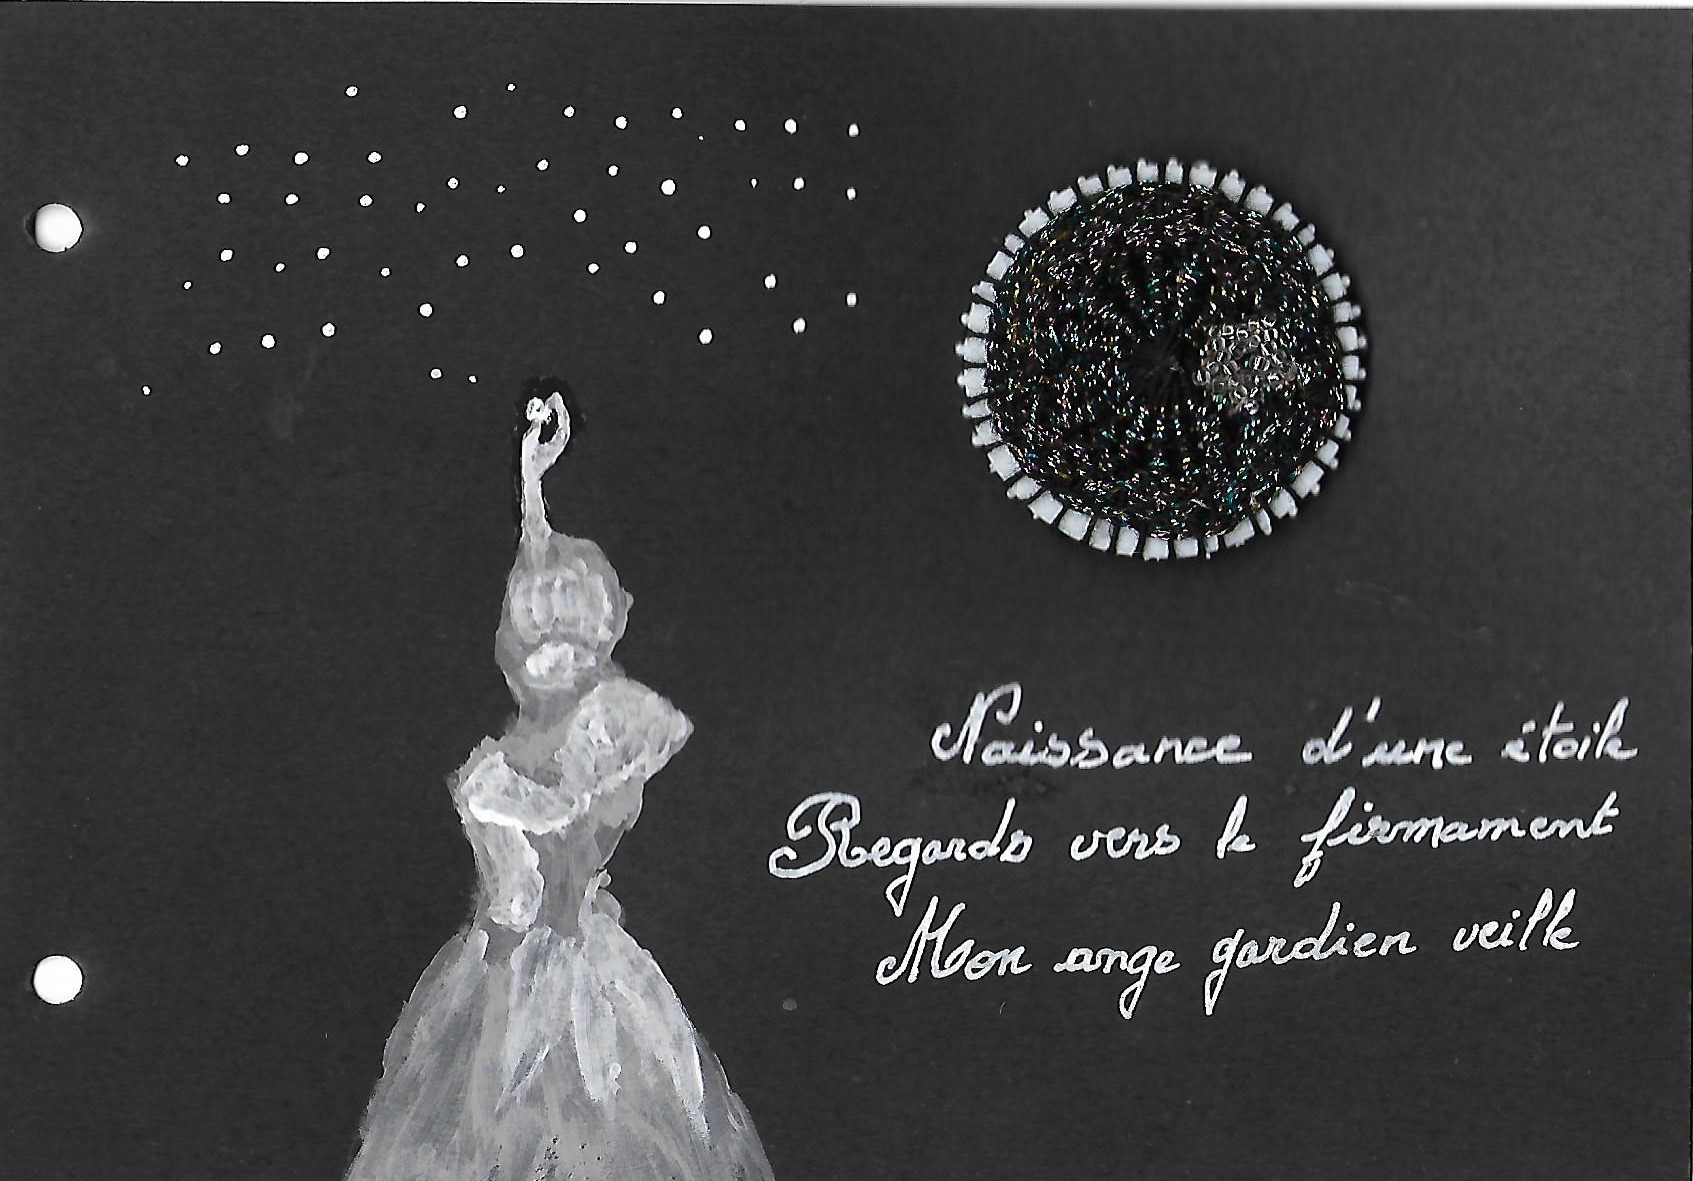 Naissance d'une étoile
Regards vers le firmament
Mon ange gardien veille